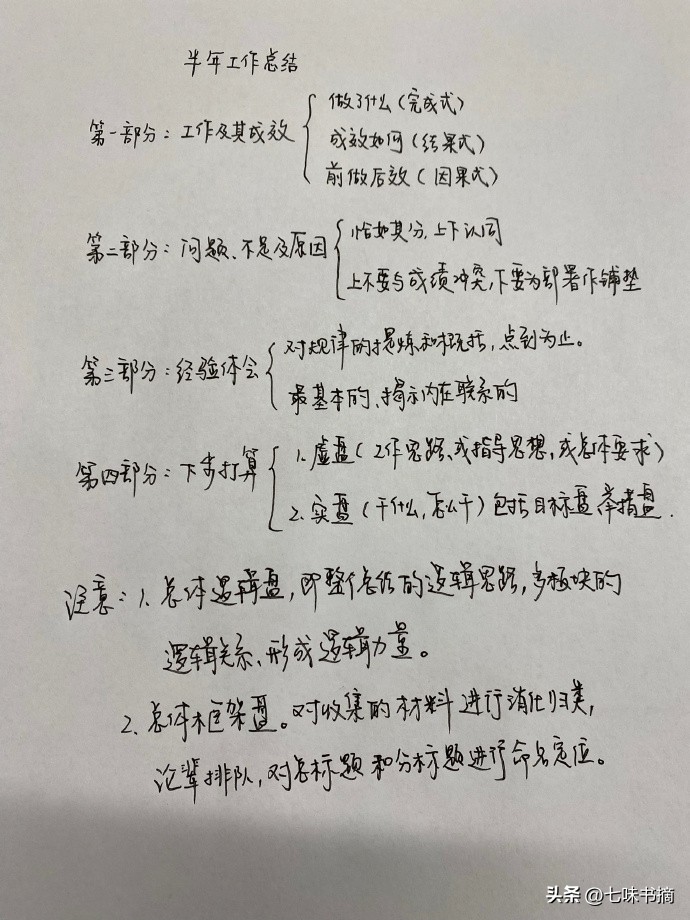 半年工作总结
第一部分：工作及其成效
做了什么（完成式）
成效如何（结果式）
前做后效（因果式）
第二部分：问题、不足及原因
恰如其分，上下认同
上不要与成绩冲突，下要为部署作铺垫
第三部分：经验体会
对规律的提炼和概括，点到为止。
最基本的、揭示内在联系的
第四部分：下步打算
1.虚盘（工作思路、或指导思想，或总体要求）
2.实盘（干什么，怎么干）包括目标盘 举措盘.
注意：1.总体逻辑盘，即整个总结的逻辑思路，多板块的
逻辑关系、形成逻辑力量。
2.总体框架盘。对收集的材料进行消化归类，
论辈排队，对总标题和分标题进行命名定位。
头条 @七味书摘